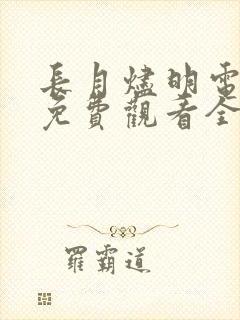 長月燼明電
免費觀看全
羅霸道